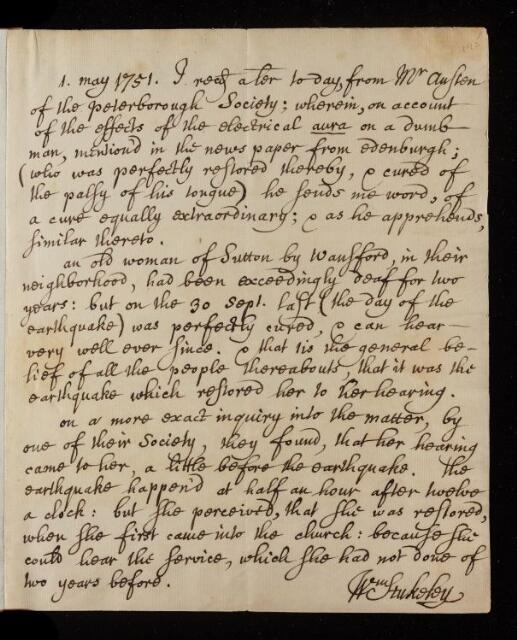 1. may 1751. I rec'd a ler to day, from Mr Austen
of the peterborough Society; wherein, on account
of the effects of the electrical aura on a dumb
man, mention'd in the news paper from edenburgh;
(who was perfectly restored thereby, & cured of
the palsy of his tongue) he sends me word, of
a cure equally extraordinary; & as he apprehends,
similar thereto.
an old woman of Sutton by Wansford, in their
neighborhood, had been exceedingly deaf for two
years: but on the 30 Sept. last (the day of the
earthquake) was perfectly cured, & can hear
very well ever since. & that tis the general be-
lief of all the people thereabouts, that it was the
earthquake which restored her to her hearing.
on a more exact inquiry into the matter, by
one of their Society, they found, that her hearing
came to her, a little before the earthquake. The
earthquake happen'd at half an hour after twelve
a clock: but she perceived, that she was restored,
when she first came into the church: because she
could hear the service, which she had not done of
two years before.
Wm Stukeley